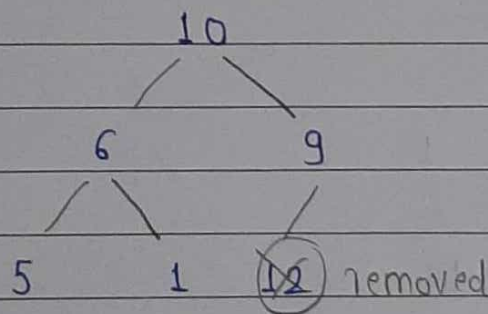 10
6 9
5 1 12 removed